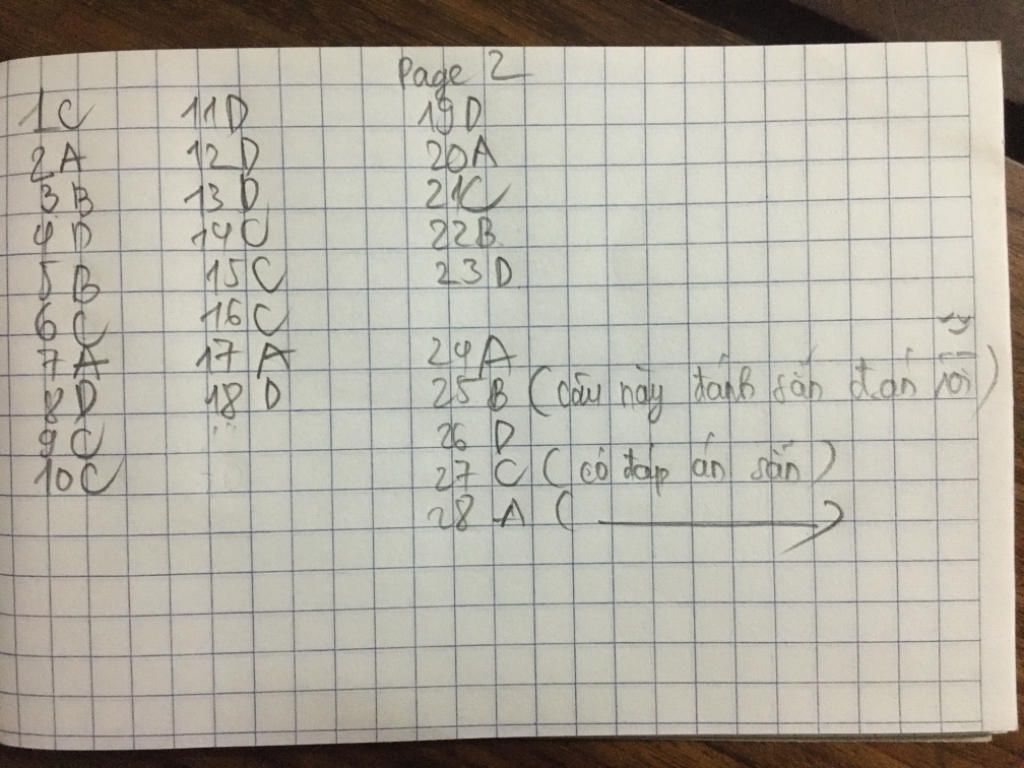 1C
2A
3B
4D
5B
6C
7A
8D
9C
10C
11D
12D
13D
14C
15C
16C
17A
18D
Page 2
19D
20A
21C
22B
23D
24A
25B (câu này đánh sẵn đán rồi)
26 D
27 C (có đáp án sẵn)
28 A (